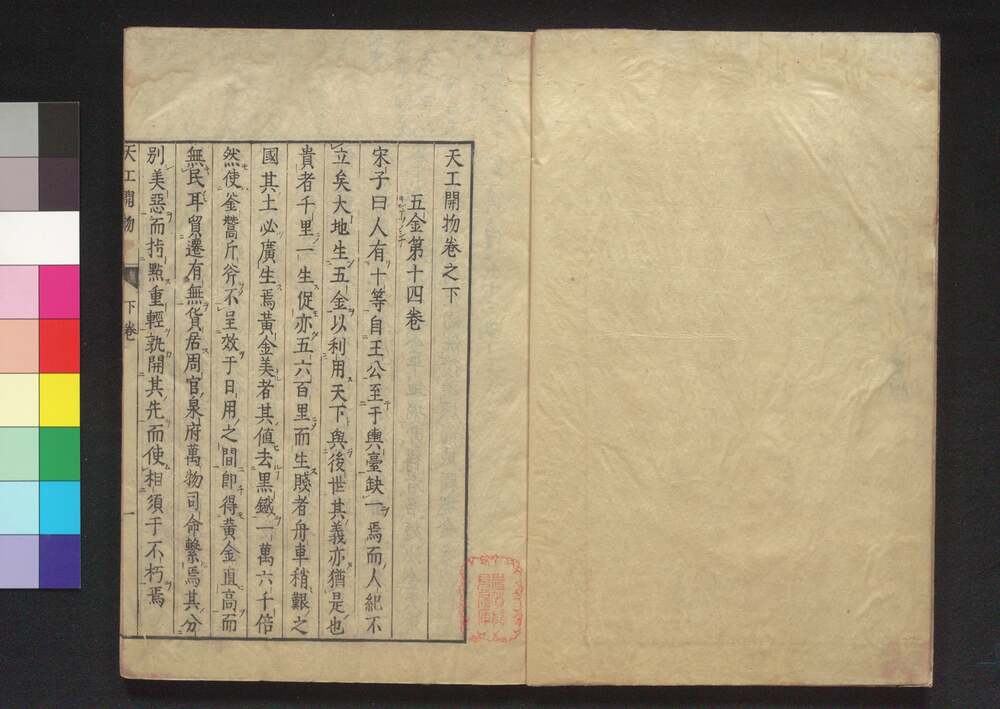 天工開物卷之下
五金第十四卷
宋子曰人有十等自王公至于輿臺缺一焉而人紀不
立矣大地生五金以利用天下與後世其義亦猶是也
貴者千里一生促亦五六百里而生賤者舟車稍艱之
國其土必廣生焉黃金美者其值去黑鐵一萬六千倍
然使釜鬵斤斧不呈效于日用之間即得黃金直高而
無民耳貿遷有無貨居周官泉府萬物司命繫焉其分
別美惡而指點重輕孰開其先而使相須于不朽焉
天工開物 下卷 一